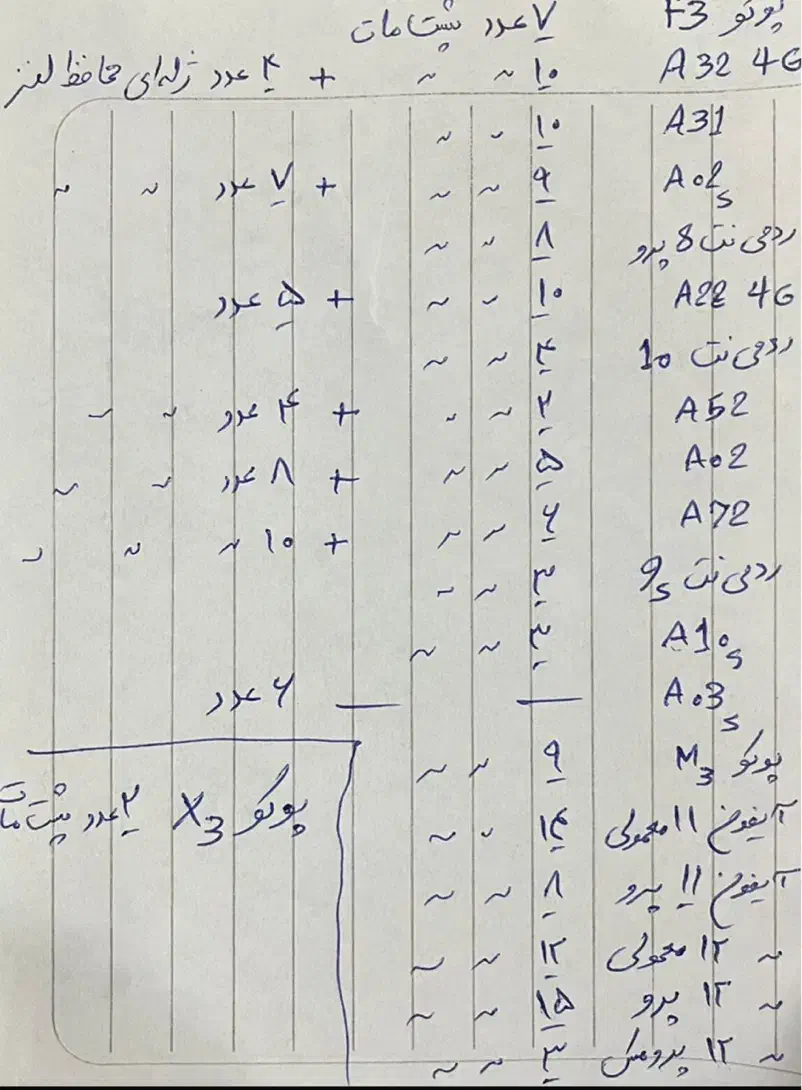 پوکو F3 ۷ عدد پشت مات
A32 4G ۱۰ ~ ~ + ۴ عدد ژله‌ای محافظ لنز
A31 ۱۰ ~ ~
A02s ۹ ~ ~ + ۷ عدد ~ ~
ردمی نت 8 پرو ۸ ~ ~
A22 4G ۱۰ ~ ~ + ۵ عدد
ردمی نت 10 ۴ ~ ~
A52 ۳ ~ ~ + ۴ عدد ~ ~
A02 ۵ ~ ~ + ۸ عدد ~ ~
A72 ۶ ~ ~ + ۱۰ ~ ~ ~
ردمی نت 9s ۳ ~ ~
A10s ۳ ~ ~
A03s — — ۶ عدد
پوکو M3 ۹ ~ ~
آیفون ۱۱ معمولی ۱۴ ~ ~
آیفون ۱۱ پرو ۸ ~ ~
~ ۱۲ معمولی ۱۲ ~ ~
~ ۱۲ پرو ۱۵ ~ ~
~ ۱۲ پرومکس ۳ ~ ~
پوکو X3 ۲ عدد پشت مات